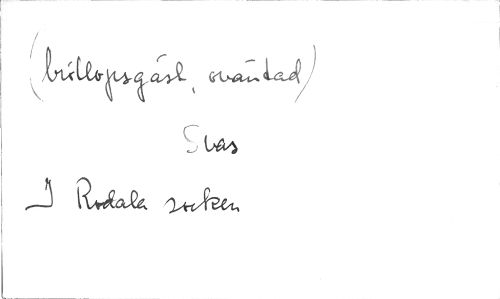 (bröllopsgäst, oväntad)
Svas
I Rodala socken